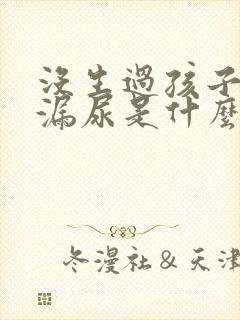 沒生過孩子
漏尿是什麼
冬漫社＆天津